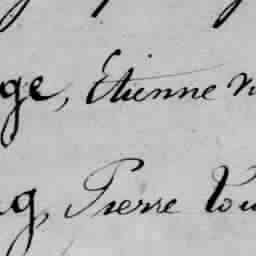 ge, Etienne
g, Pierre